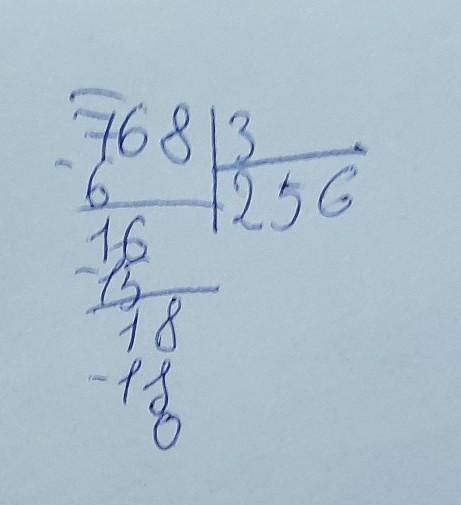 768 | 3
- 6 | 256
16
- 15
18
- 18
0